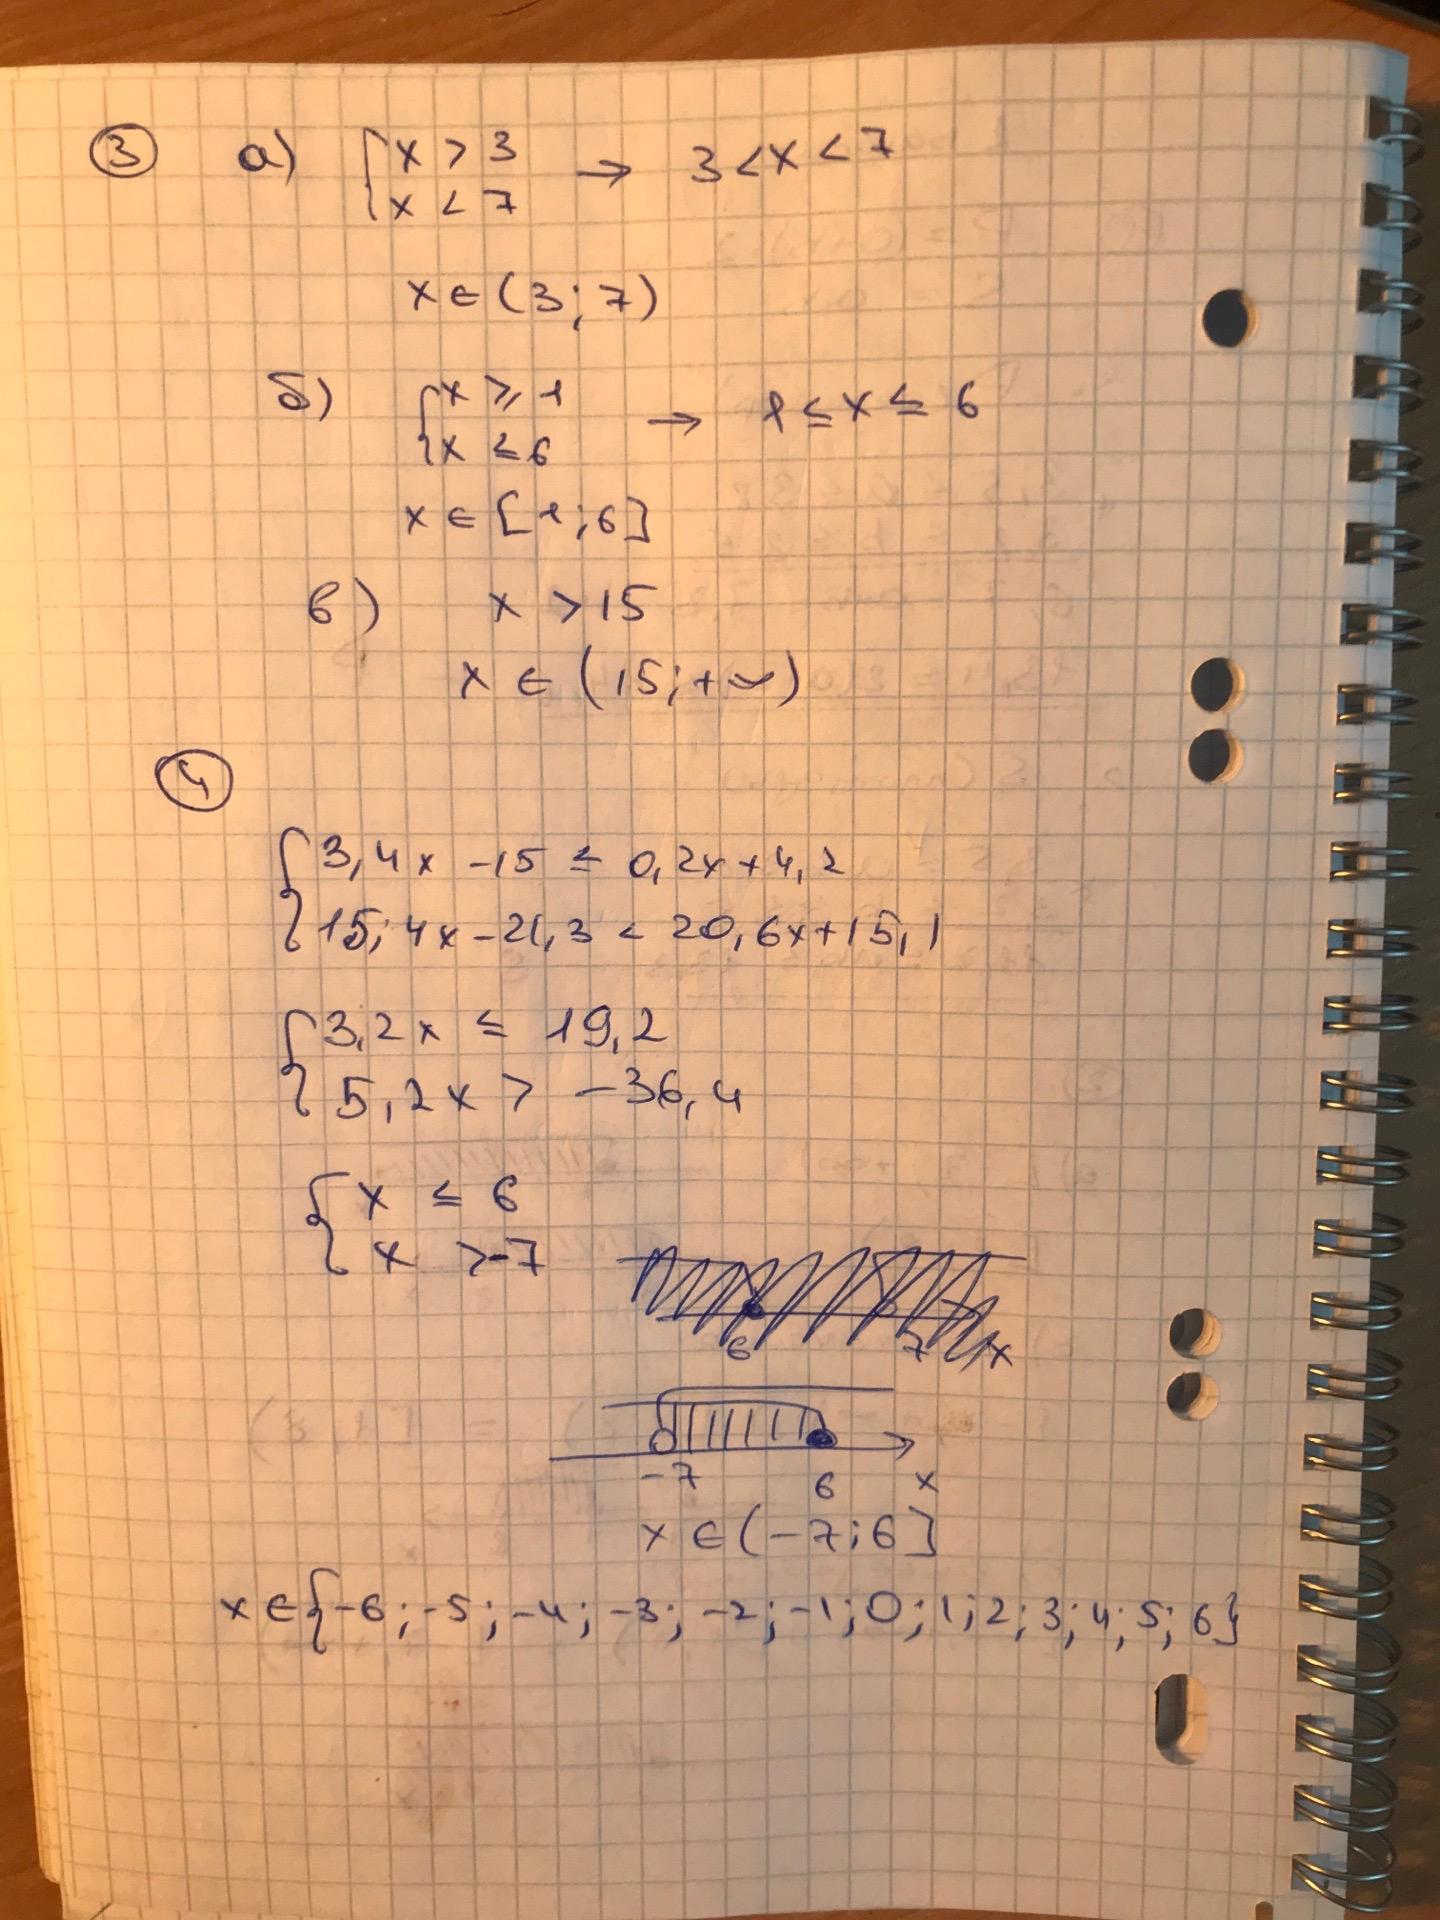 ③ а) { x > 3 → 3 < x < 7
x < 7
x ∈ (3; 7)
б) { x ⩾ 1 → 1 ≤ x ≤ 6
x ≤ 6
x ∈ [1; 6]
в) x > 15
x ∈ (15; +∞)
④
{ 3,4x - 15 ≤ 0,2x + 4,2
15; 4x - 21,3 < 20,6x + 15,1
{ 3,2x ≤ 19,2
5,2x > -36,4
{ x ≤ 6
x > -7
6 7 x
-7 6 x
x ∈ (-7; 6]
x ∈ {-6; -5; -4; -3; -2; -1; 0; 1; 2; 3; 4; 5; 6}